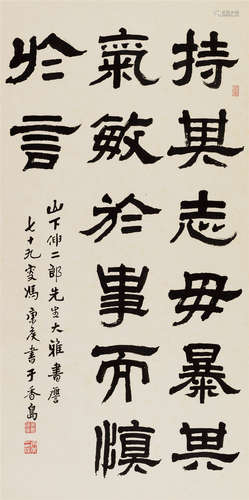 持其志毋暴其
氣敏於事而慎
於言
山下伸二郎先生大雅書屬
七十九叟馮康侯書于香島